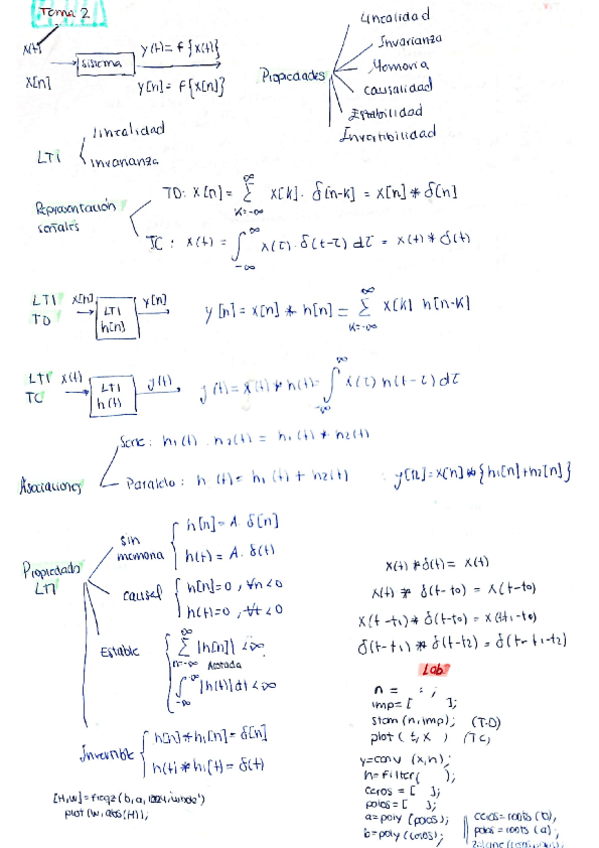 Tema 2
x(t)
x[n]
sistema
y(t)= f{x(t)}
y[n]= f{x[n]}
Propiedades
Linealidad
Invarianza
Memoria
causalidad
Estabilidad
Invertibilidad
LTI
linealidad
invarianza
Representación señales
TD: x[n]= ∑ k=-∞ ∞ x[k]. δ[n-k] = x[n] * δ[n]
TC: x(t) = ∫ -∞ ∞ x(τ). δ(t-τ) dτ = x(t) * δ(t)
LTI TD
x[n]
LTI h[n]
y[n]
y[n]= x[n] * h[n] = ∑ k=-∞ ∞ x[k] h[n-k]
LTI TC
x(t)
LTI h(t)
y(t)
y(t) = x(t) * h(t)= ∫ -∞ ∞ x(τ) h(t-τ) dτ
Asociaciones
Serie: h1(t) . h2(t) = h1(t) * h2(t)
Paralelo: h(t)= h1(t) + h2(t) : y[n]= x[n] * {h1[n]+h2[n]}
Propiedades LTI
sin memoria
h[n]= A. δ[n]
h(t)= A. δ(t)
causal
h[n]=0, ∀n<0
h(t)=0, ∀t<0
Estable
∑ n=-∞ ∞ |h[n]| <∞
Acotada
∫ -∞ ∞ |h(t)| dt <∞
Invertible
h[n]*h1[n]= δ[n]
h(t)*h1(t)= δ(t)
[H,w]=freqz(b,a,1024,'whole')
plot(w,abs(H));
x(t) * δ(t)= x(t)
x(t) * δ(t-t0) = x(t-t0)
x(t-t1) * δ(t-t0) = x(t-t1-t0)
δ(t-t1) * δ(t-t2) = δ(t-t1-t2)
Lab
n = : ;
imp=[ ];
stem(n,imp); (T.D)
plot(t,x) (TC)
y=conv(x,h);
h=filter( );
ceros=[ ];
polos=[ ];
a=poly(polos);
b=poly(ceros);
ceros=roots(b),
polos=roots(a);